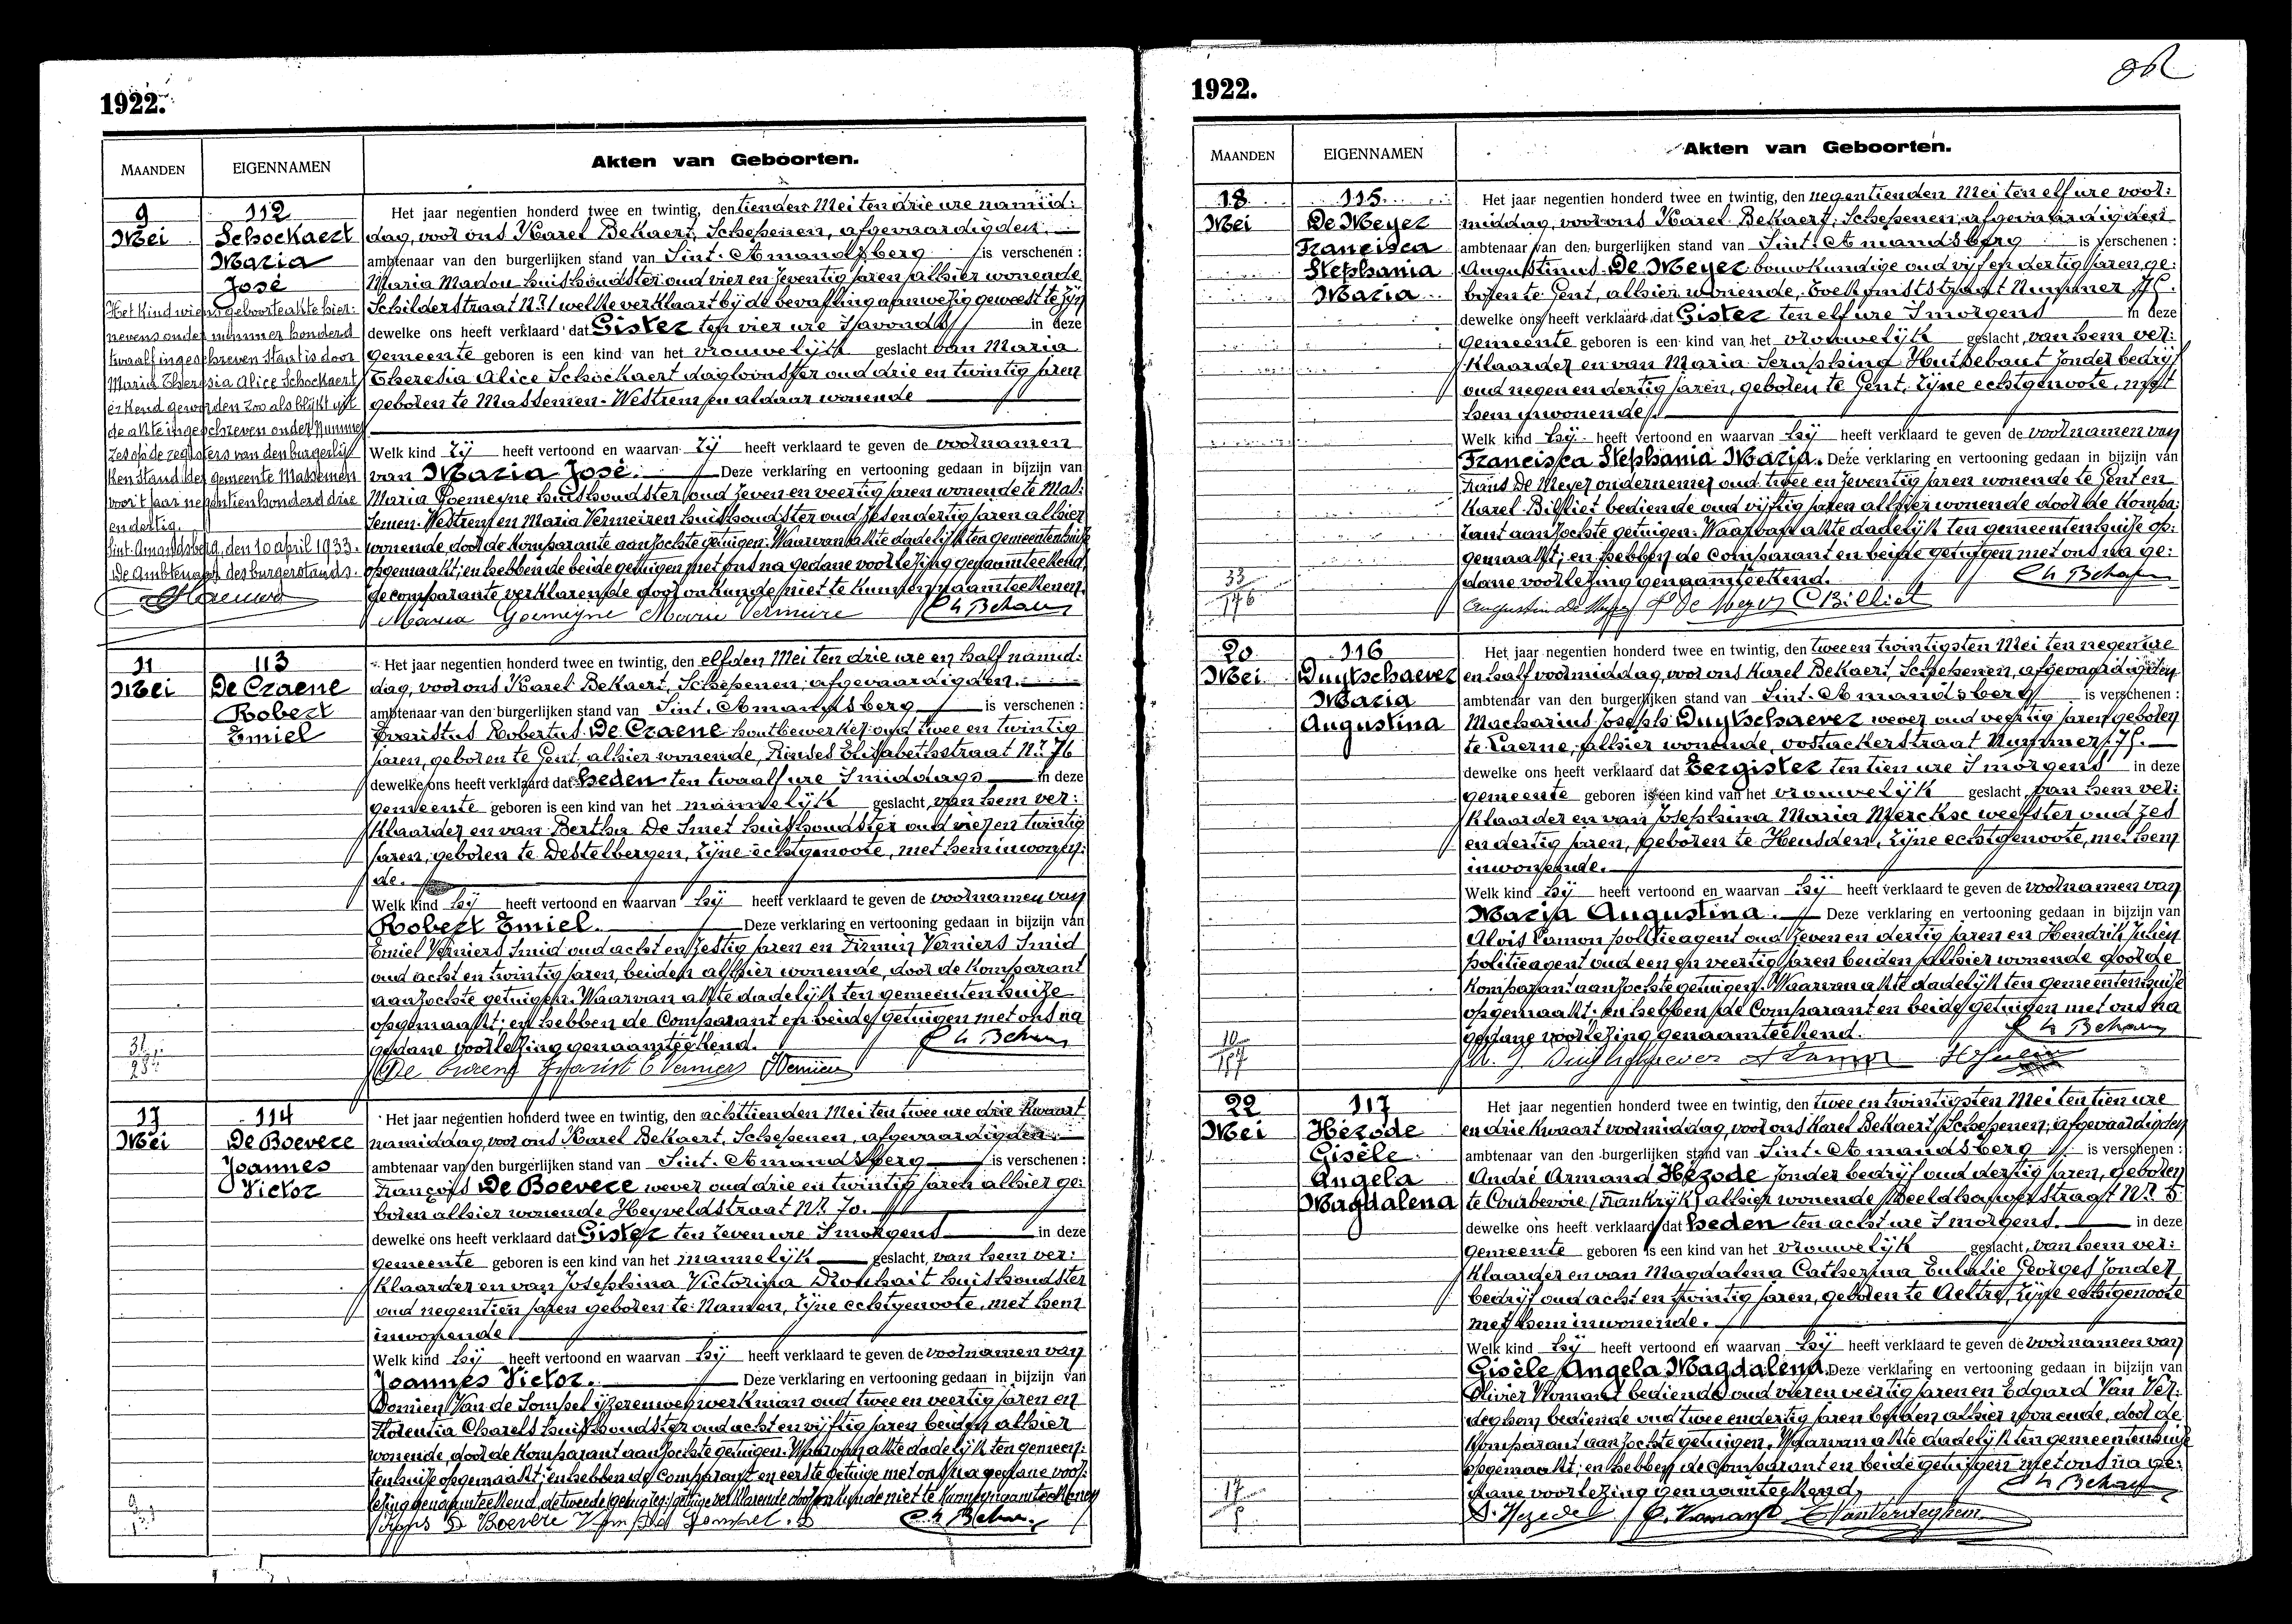 1922.
MAANDEN
EIGENNAMEN
Akten van Geboorten.
9
Mei
112
Schockaert
Maria
José
Het kind wiens geboorteakte hier:
nevens onder nummer honderd
twaalf ingeschreven staat is door
Maria Theresia Alice Schockaert
erkend geworden zoo als blijkt uit
de akte ingeschreven onder Nummer
zes op de registers van den burgerlij
ken stand der gemeente Massemen
voor 't jaar negentien honderd drie
en dertig.
Sint-Amandsberg, den 10 april 1933.
De Ambtenaar des burgerstands.
Het jaar negentien honderd twee en twintig, den tienden Mei ten drie ure namid:
dag, voor ons Karel Bekaert, Schepenen, afgevaardigden
ambtenaar van den burgerlijken stand van Sint-Amandsberg is verschenen :
Maria Madou huishoudster oud vier en zeventig jaren alhier wonende
Schilderstraat Nr. 1 welke verklaart bij de bevalling aanwezig geweest te zijn
dewelke ons heeft verklaard dat Gister ten vier ure 's avonds in deze
gemeente geboren is een kind van het vrouwelijk geslacht van Maria
Theresia Alice Schockaert dagloonster oud drie en twintig jaren
geboren te Massemen-Westrem en aldaar wonende
Welk kind zij heeft vertoond en waarvan zij heeft verklaard te geven de voornamen
van Maria José. Deze verklaring en vertooning gedaan in bijzijn van
Maria Goemeyne huishoudster oud zeven en veertig jaren wonende te Mas:
semen-Westrem en Maria Vermeiren huishoudster oud zes en dertig jaren alhier
wonende, door de komparante aanzochte getuigen. Waarvan akte dadelijk ten gemeentenhuize
opgemaakt; en hebben de beide getuigen met ons na gedane voorlezing genaamteekend,
de comparante verklarende door onkunde niet te kunnen naamteekenen.
Maria Goemeyne Marie Vermeire Ch Bekaert
11
Mei
113
De Craene
Robert
Emiel
Het jaar negentien honderd twee en twintig, den elfden Mei ten drie ure en half namid:
dag, voor ons Karel Bekaert, Schepenen, afgevaardigden
ambtenaar van den burgerlijken stand van Sint-Amandsberg is verschenen :
Evaristus Robertus De Craene houtbewerker oud twee en twintig
jaren, geboren te Gent, alhier wonende, Prinses Elisabethstraat Nr. 76
dewelke ons heeft verklaard dat heden ten twaalf ure 's middags in deze
gemeente geboren is een kind van het mannelijk geslacht, van hem ver:
klaarder en van Bertha De Smet huishoudster oud vier en twintig
jaren, geboren te Destelbergen, zijne echtgenoote, met hem inwonen:
de.
Welk kind hij heeft vertoond en waarvan hij heeft verklaard te geven de voornamen van
Robert Emiel. Deze verklaring en vertooning gedaan in bijzijn van
Emiel Verniers smid oud acht en zestig jaren en Firmin Verniers smid
oud acht en twintig jaren, beiden alhier wonende, door de komparant
aanzochte getuigen. Waarvan akte dadelijk ten gemeentenhuize
opgemaakt; en hebben de Comparant en beide getuigen met ons na
gedane voorlezing genaamteekend. Ch Bekaert
De Craene Evarist E Verniers F Verniers
17
Mei
114
De Boevere
Joannes
Victor
Het jaar negentien honderd twee en twintig, den achttienden Mei ten twee ure drie kwaart
namiddag, voor ons Karel Bekaert, Schepenen, afgevaardigden
ambtenaar van den burgerlijken stand van Sint-Amandsberg is verschenen :
François De Boevere wever oud drie en twintig jaren alhier ge:
boren alhier wonende Heyveldstraat Nr. 70.
dewelke ons heeft verklaard dat Gister ten zeven ure 's morgens in deze
gemeente geboren is een kind van het mannelijk geslacht, van hem ver:
klaarder en van Josephina Victorina Dronhait huishoudster
oud negentien jaren geboren te Namen, zijne echtgenoote, met hem
inwonende
Welk kind hij heeft vertoond en waarvan hij heeft verklaard te geven de voornamen van
Joannes Victor. Deze verklaring en vertooning gedaan in bijzijn van
Domien Van de Sompel ijzerenwegwerkman oud twee en veertig jaren en
Florentia Charels huishoudster oud acht en vijftig jaren beiden alhier
wonende, door de komparant aanzochte getuigen. Waarvan akte dadelijk ten gemeen:
tenhuize opgemaakt; en hebben de Comparant en eerste getuige met ons na gedane voor:
lezing genaamteekend, de tweede getuige verklarende door onkunde niet te kunnen naamteekenen
Frans De Boevere Van de Sompel. D Ch Bekaert
1922.
MAANDEN
EIGENNAMEN
Akten van Geboorten.
18
Mei
115
De Meyer
Francisca
Stephania
Maria
33
176
Het jaar negentien honderd twee en twintig, den negentienden Mei ten elf ure voor:
middag, voor ons Karel Bekaert, Schepenen, afgevaardigden
ambtenaar van den burgerlijken stand van Sint-Amandsberg is verschenen :
Augustinus De Meyer bouwkundige oud vijf en dertig jaren ge:
boren te Gent, alhier wonende, Toekomststraat Nummer 75.
dewelke ons heeft verklaard dat Gister ten elf ure 's morgens in deze
gemeente geboren is een kind van het vrouwelijk geslacht, van hem ver:
klaarder en van Maria Seraphina Huisebaut zonder bedrijf
oud negen en dertig jaren, geboren te Gent, zijne echtgenoote, met
hem inwonende.
Welk kind hij heeft vertoond en waarvan hij heeft verklaard te geven de voornamen van
Francisca Stephania Maria. Deze verklaring en vertooning gedaan in bijzijn van
Frans De Meyer ondernemer oud twee en zeventig jaren wonende te Gent en
Karel Billiet bediende oud vijftig jaren alhier wonende door de kompa:
rant aanzochte getuigen. Waarvan akte dadelijk ten gemeentenhuize op:
gemaakt; en hebben de Comparant en beide getuigen met ons na ge:
dane voorlezing genaamteekend. Ch Bekaert
Augustin de Meyer F De Meyer C Billiet
20
Mei
116
Duytschaever
Maria
Augustina
10
197
Het jaar negentien honderd twee en twintig, den twee en twintigsten Mei ten negen ure
en half voormiddag, voor ons Karel Bekaert, Schepenen, afgevaardigden
ambtenaar van den burgerlijken stand van Sint-Amandsberg is verschenen :
Macharius Joseph Duytschaever wever oud veertig jaren geboren
te Laerne, alhier wonende, Oostackerstraat Nummer 75.
dewelke ons heeft verklaard dat Eergister ten tien ure 's morgens in deze
gemeente geboren is een kind van het vrouwelijk geslacht, van hem ver:
klaarder en van Josephina Maria Merckse weefster oud zes
en dertig jaren, geboren te Heusden, zijne echtgenoote, met hem
inwonende.
Welk kind hij heeft vertoond en waarvan hij heeft verklaard te geven de voornamen van
Maria Augustina. Deze verklaring en vertooning gedaan in bijzijn van
Alois Lamon politieagent oud zeven en dertig jaren en Hendrik Julien
politieagent oud een en veertig jaren beiden alhier wonende door de
komparant aanzochte getuigen. Waarvan akte dadelijk ten gemeentenhuize
opgemaakt; en hebben de Comparant en beide getuigen met ons na
gedane voorlezing genaamteekend. Ch Bekaert
M. J. Duytschaever A Lamon H Julien
22
Mei
117
Hézode
Gisèle
Angela
Magdalena
17
Het jaar negentien honderd twee en twintig, den twee en twintigsten Mei ten tien ure
en drie kwaart voormiddag, voor ons Karel Bekaert, Schepenen, afgevaardigden
ambtenaar van den burgerlijken stand van Sint-Amandsberg is verschenen :
André Armand Hézode zonder bedrijf oud dertig jaren, geboren
te Courbevoie (Frankrijk) alhier wonende Beeldhouwerstraat Nr. 5
dewelke ons heeft verklaard dat heden ten acht ure 's morgens. in deze
gemeente geboren is een kind van het vrouwelijk geslacht, van hem ver:
klaarder en van Magdalena Catherina Eulalie Georges zonder
bedrijf oud acht en twintig jaren, geboren te Aeltre, zijne echtgenoote
met hem inwonende.
Welk kind hij heeft vertoond en waarvan hij heeft verklaard te geven de voornamen van
Gisèle Angela Magdalena. Deze verklaring en vertooning gedaan in bijzijn van
Olivier Komant bediende oud vier en veertig jaren en Edgard Van Ver:
deghem bediende oud twee en dertig jaren beiden alhier wonende, door de
komparant aanzochte getuigen. Waarvan akte dadelijk ten gemeentenhuize
opgemaakt; en hebben de Comparant en beide getuigen met ons na ge:
dane voorlezing genaamteekend. Ch Bekaert
A. Hezode O. Komant